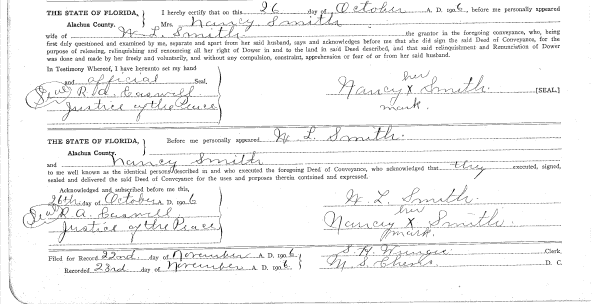 THE STATE OF FLORIDA, } I hereby certify that on this 26 day of October A. D. 1906, before me personally appeared
Alachua County. Mrs. Nancy Smith
wife of W. L. Smith the grantor in the foregoing conveyance, who, being
first duly questioned and examined by me, separate and apart from her said husband, says and acknowledges before me that she did sign the said Deed of Conveyance, for the
purpose of releasing, relinquishing and renouncing all her right of Dower in and to the land in said Deed described, and that said relinquishment and Renunciation of Dower
was done and made by her freely and voluntarily, and without any compulsion, constraint, apprehension or fear of or from her said husband.
In Testimony Whereof, I have hereunto set my hand
and official Seal.
(Seal) R. A. Caswell
Justice of the Peace
her
Nancy X Smith [SEAL]
mark.
THE STATE OF FLORIDA, } Before me personally appeared W. L. Smith.
Alachua County.
and Nancy Smith
to me well known as the identical persons described in and who executed the foregoing Deed of Conveyance, who acknowledged that they executed, signed,
sealed and delivered the said Deed of Conveyance for the uses and purposes therein contained and expressed.
Acknowledged and subscribed before me this,
26th day of October A. D. 1906
(Seal) R. A. Caswell
Justice of the Peace
W. L. Smith.
her
Nancy X Smith.
mark.
Filed for Record 22nd day of November A. D. 1906 S. H. Clerk.
Recorded 23rd day of November A. D. 1906. S. D. C.